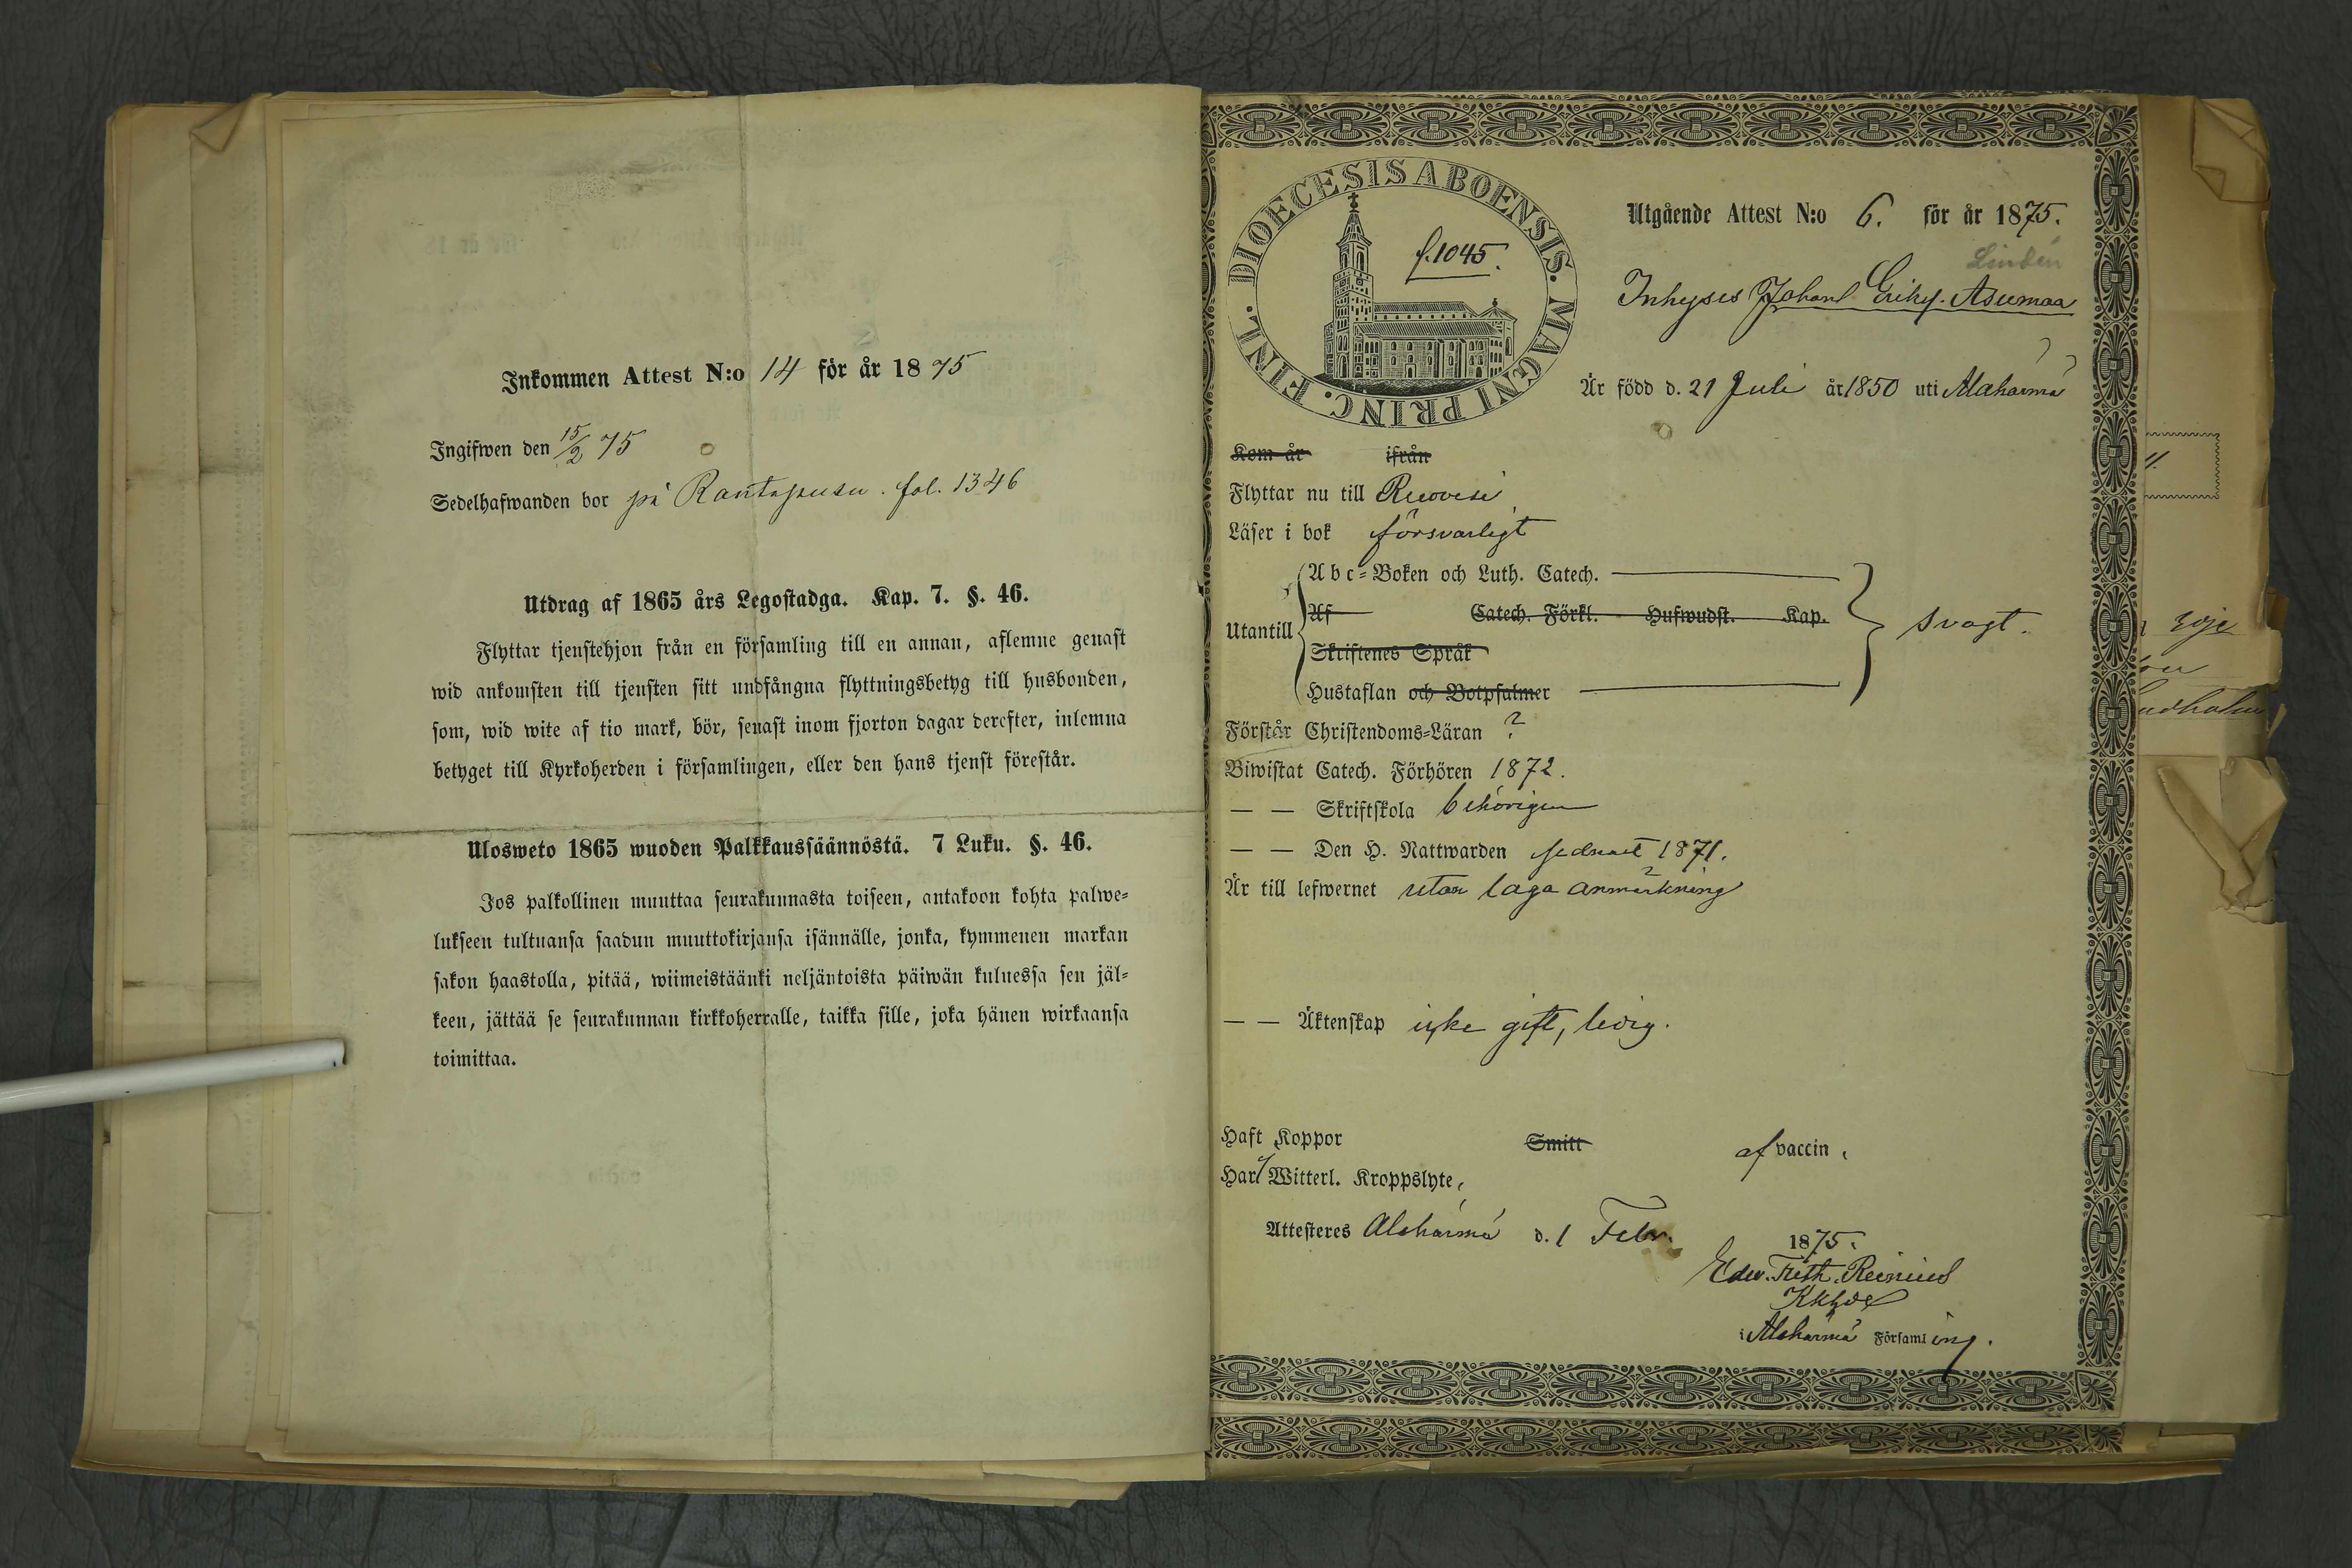 Inkommen Attest N:o 14 för år 1875
Ingifwen den 15/2 75
Sedelhafwanden bor på Rantapusu. fol. 1346
Utdrag af 1865 års Legostadga. Kap. 7. §. 46.
Flyttar tjenstehjon från en församling till en annan, aflemne genast
wid ankomsten till tjensten sitt undfångna flyttningsbetyg till husbonden,
som, wid wite af tio mark, bör, senast inom fjorton dagar derefter, inlemna
betyget till Kyrkoherden i församlingen, eller den hans tjenst förestår.
Ulosweto 1865 wuoden Palkkaussäännöstä. 7 Luku. §. 46.
Jos palkollinen muuttaa seurakunnasta toiseen, antakoon kohta palwe-
lukseen tultuansa saadun muuttokirjansa isännälle, jonka, kymmenen markan
sakon haastolla, pitää, wiimeistäänki neljäntoista päiwän kuluessa sen jäl-
keen, jättää se seurakunnan kirkkoherralle, taikka sille, joka hänen wirkaansa
toimittaa.
DIOECESIS ABOENSIS. MAGNI PRINC. FINL.
f. 1045.
Utgående Attest N:o 6. för år 1875.
Lindén
Inhyses Johan Eriks. Asumaa
Är född d. 21 Juli år 1850 uti Alahärmä
Kom år ifrån
Flyttar nu till Ruovesi
Läser i bok försvarligt
Abc-Boken och Luth. Catech.
Utantill
Af Catech. Förkl. Hufwudst. Kap.
Skriftenes Språk
Hustaflan och Botpsalmer
svagt.
Förstår Christendoms-Läran ?
Biwistat Catech. Förhören 1872.
— — Skriftskola behörigen
— — Den H. Nattwarden sednast 1871.
Är till lefwernet utan laga anmärkning
— — Äktenskap icke gift, ledig.
Haft Koppor Smitt af vaccin,
Har Witterl. Kroppslyte,
Attesteres Alahärmä d. 1 Febr. 1875.
Edw. Freth. Reinius
Kkhde
i Alahärmä Församling.